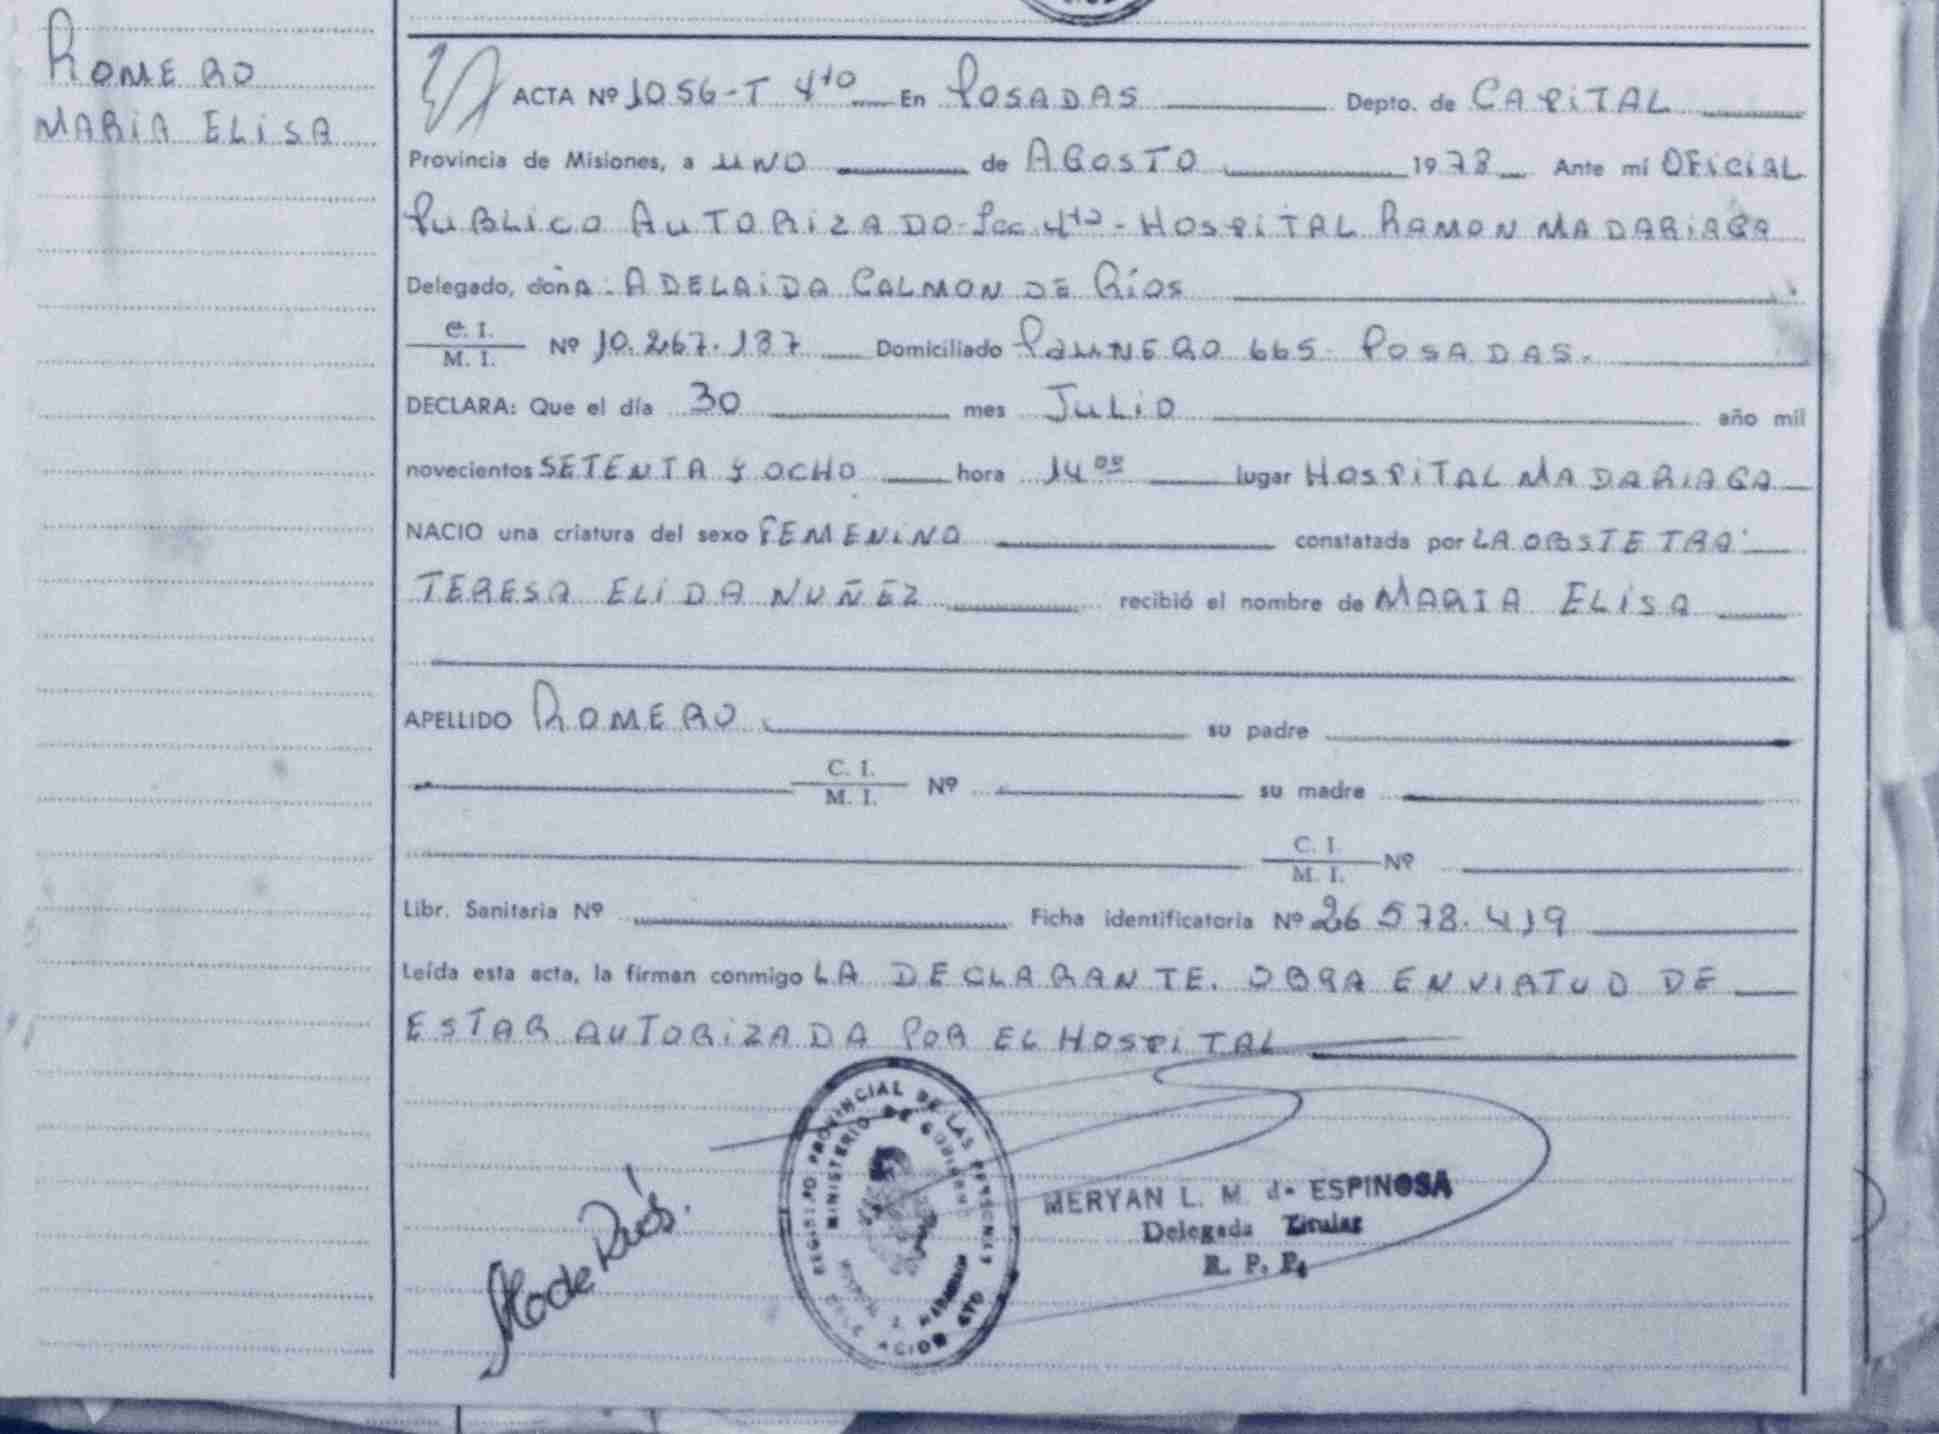 ROMERO
MARIA ELISA
ACTA Nº 1056-T 4to En POSADAS Depto. de CAPITAL
Provincia de Misiones, a UNO de AGOSTO 1978 Ante mí OFICIAL
PUBLICO AUTORIZADO-Sec. 4ta-HOSPITAL RAMON MADARIAGA
Delegado, doñA. ADELAIDA CALMON DE Ríos
C. I.
M. I. Nº 10.267.137 Domiciliado PAUNERO 665- POSADAS.
DECLARA: Que el día 30 mes JULIO año mil
novecientos SETENTA Y OCHO hora 14 00 lugar HOSPITAL MADARIAGA
NACIO una criatura del sexo FEMENINO constatada por LA OBSTETRA
TERESA ELIDA NUÑEZ recibió el nombre de MARIA ELISA
APELLIDO ROMERO su padre
C. I.
M. I. Nº su madre
C. I.
M. I. Nº
Libr. Sanitaria Nº Ficha identificatoria Nº 26 578.419
Leída esta acta, la firman conmigo LA DECLARANTE. OBRA EN VIRTUD DE
ESTAR AUTORIZADA POR EL HOSPITAL
REGISTRO PROVINCIAL DE LAS PERSONAS
MINISTERIO DE GOBIERNO
DELEGACION 4TO
de Ríos.
MERYAN L. M. de ESPINOSA
Delegada Titular
R. P. P.